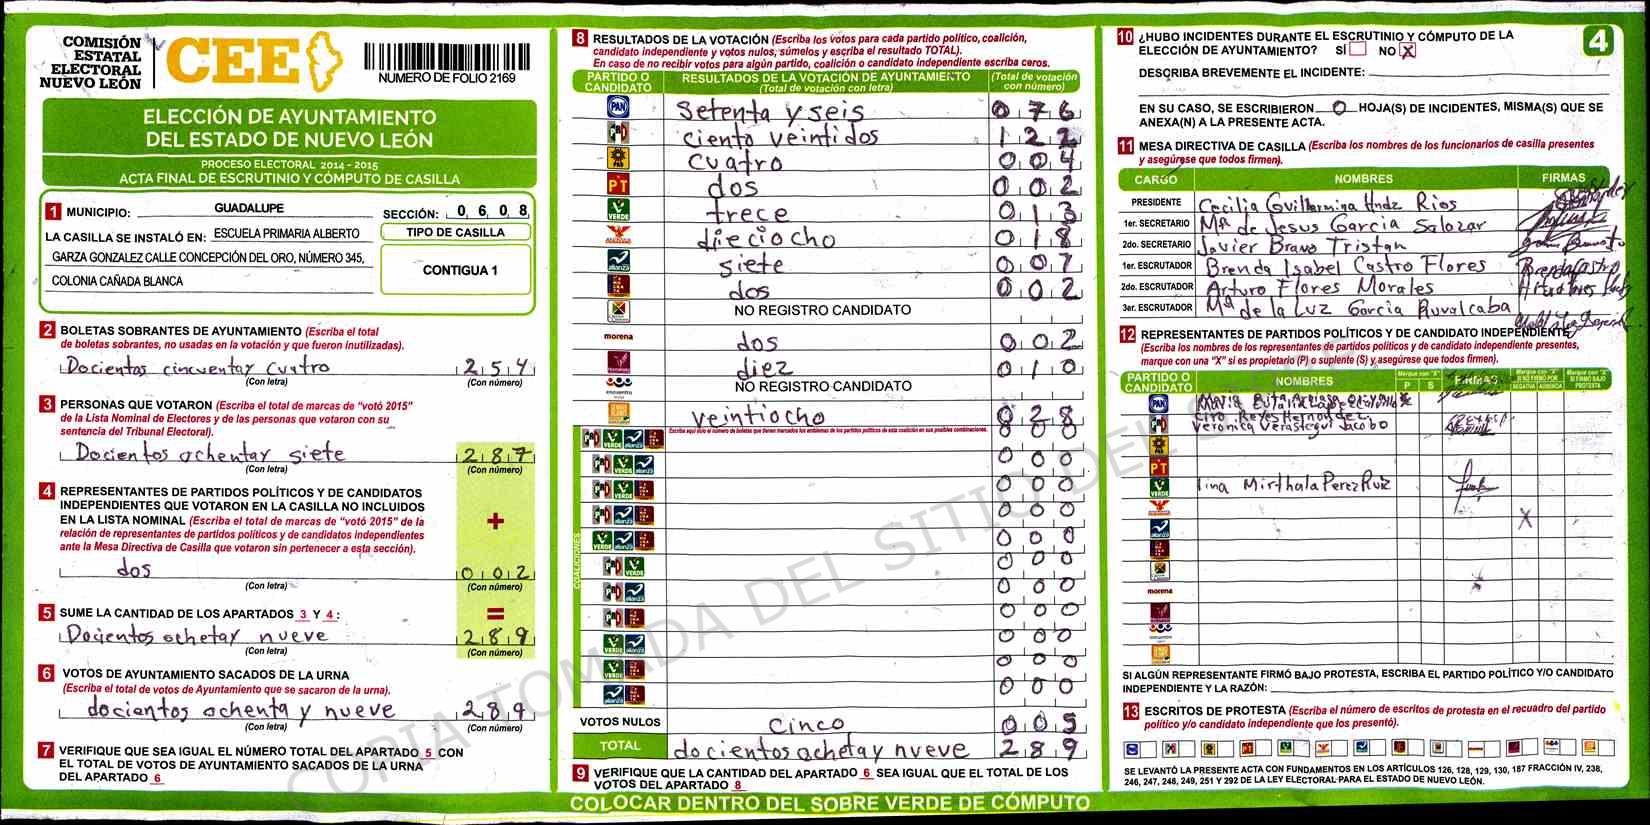 COMISIÓN
ESTATAL
ELECTORAL
NUEVO LEÓN
CEE
NUMERO DE FOLIO 2169
ELECCIÓN DE AYUNTAMIENTO
DEL ESTADO DE NUEVO LEÓN
PROCESO ELECTORAL 2014 - 2015
ACTA FINAL DE ESCRUTINIO Y CÓMPUTO DE CASILLA
1 MUNICIPIO: GUADALUPE SECCIÓN: 0 6 0 8
LA CASILLA SE INSTALÓ EN: ESCUELA PRIMARIA ALBERTO
GARZA GONZALEZ CALLE CONCEPCIÓN DEL ORO, NÚMERO 345,
COLONIA CAÑADA BLANCA
TIPO DE CASILLA
CONTIGUA 1
2 BOLETAS SOBRANTES DE AYUNTAMIENTO (Escriba el total
de boletas sobrantes, no usadas en la votación y que fueron inutilizadas).
Docientos cincuentay cuatro 2 5 4
(Con letra) (Con número)
3 PERSONAS QUE VOTARON (Escriba el total de marcas de “votó 2015”
de la Lista Nominal de Electores y de las personas que votaron con su
sentencia del Tribunal Electoral).
Docientos ochentay siete 2 8 7
(Con letra) (Con número)
4 REPRESENTANTES DE PARTIDOS POLÍTICOS Y DE CANDIDATOS
INDEPENDIENTES QUE VOTARON EN LA CASILLA NO INCLUIDOS
EN LA LISTA NOMINAL (Escriba el total de marcas de “votó 2015” de la
relación de representantes de partidos políticos y de candidatos independientes
ante la Mesa Directiva de Casilla que votaron sin pertenecer a esta sección).
+
dos 0 0 2
(Con letra) (Con número)
5 SUME LA CANTIDAD DE LOS APARTADOS 3 Y 4 :
=
Docientos ochetay nueve 2 8 9
(Con letra) (Con número)
6 VOTOS DE AYUNTAMIENTO SACADOS DE LA URNA
(Escriba el total de votos de Ayuntamiento que se sacaron de la urna).
docientos ochenta y nueve 2 8 9
(Con letra) (Con número)
7 VERIFIQUE QUE SEA IGUAL EL NÚMERO TOTAL DEL APARTADO 5 CON
EL TOTAL DE VOTOS DE AYUNTAMIENTO SACADOS DE LA URNA
DEL APARTADO 6
8 RESULTADOS DE LA VOTACIÓN (Escriba los votos para cada partido político, coalición,
candidato independiente y votos nulos, súmelos y escriba el resultado TOTAL).
En caso de no recibir votos para algún partido, coalición o candidato independiente escriba ceros.
PARTIDO O CANDIDATO RESULTADOS DE LA VOTACIÓN DE AYUNTAMIENTO (Total de votación con letra) (Total de votación con número)
PAN Setenta y seis 0 7 6
ciento veintidos 1 2 2
cuatro 0 0 4
PT dos 0 0 2
VERDE trece 0 1 3
dieciocho 0 1 8
alianza siete 0 0 7
dos 0 0 2
NO REGISTRO CANDIDATO
morena dos 0 0 2
diez 0 1 0
NO REGISTRO CANDIDATO
veintiocho 0 2 8
Escriba aquí sólo el número de boletas que tienen marcados los emblemas de los partidos políticos de esta coalición en sus posibles combinaciones.
COALICIONES
0 0 0
0 0 0
0 0 0
0 0 0
0 0 0
0 0 0
0 0 0
0 0 0
0 0 0
0 0 0
0 0 0
VOTOS NULOS cinco 0 0 5
TOTAL docientos ochetay nveve 2 8 9
9 VERIFIQUE QUE LA CANTIDAD DEL APARTADO 6 SEA IGUAL QUE EL TOTAL DE LOS
VOTOS DEL APARTADO 8
COLOCAR DENTRO DEL SOBRE VERDE DE CÓMPUTO
10 ¿HUBO INCIDENTES DURANTE EL ESCRUTINIO Y CÓMPUTO DE LA
ELECCIÓN DE AYUNTAMIENTO? SÍ NO X
4
DESCRIBA BREVEMENTE EL INCIDENTE:
EN SU CASO, SE ESCRIBIERON 0 HOJA(S) DE INCIDENTES, MISMA(S) QUE SE
ANEXA(N) A LA PRESENTE ACTA.
11 MESA DIRECTIVA DE CASILLA (Escriba los nombres de los funcionarios de casilla presentes
y asegúrese que todos firmen).
CARGO NOMBRES FIRMAS
PRESIDENTE Cecilia Guillermina Hndz Rios
1er. SECRETARIO Mª de Jesus Garcia Salazar
2do. SECRETARIO Javier Bravo Tristan
1er. ESCRUTADOR Brenda Isabel Castro Flores Brenda Castro
2do. ESCRUTADOR Arturo Flores Morales
3er. ESCRUTADOR Mª de la Luz Garcia Ruvalcaba
12 REPRESENTANTES DE PARTIDOS POLÍTICOS Y DE CANDIDATO INDEPENDIENTE
(Escriba los nombres de los representantes de partidos políticos y de candidato independiente presentes,
marque con una “X” si es propietario (P) o suplente (S) y asegúrese que todos firmen).
PARTIDO O CANDIDATO NOMBRES Marque con "X" P S FIRMAS Marque con "X" SI NO FIRMÓ POR NEGATIVA AUSENCIA Marque con "X" SI FIRMÓ BAJO PROTESTA
PAN
Veronica Verastegui Jacobo
PT
VERDE Mirthala Perez Ruiz
X
morena
SI ALGÚN REPRESENTANTE FIRMÓ BAJO PROTESTA, ESCRIBA EL PARTIDO POLÍTICO Y/O CANDIDATO
INDEPENDIENTE Y LA RAZÓN:
13 ESCRITOS DE PROTESTA (Escriba el número de escritos de protesta en el recuadro del partido
político y/o candidato independiente que los presentó).
SE LEVANTÓ LA PRESENTE ACTA CON FUNDAMENTOS EN LOS ARTÍCULOS 126, 128, 129, 130, 187 FRACCIÓN IV, 238,
246, 247, 248, 249, 251 Y 292 DE LA LEY ELECTORAL PARA EL ESTADO DE NUEVO LEÓN.
COPIA TOMADA DEL SITIO DEL